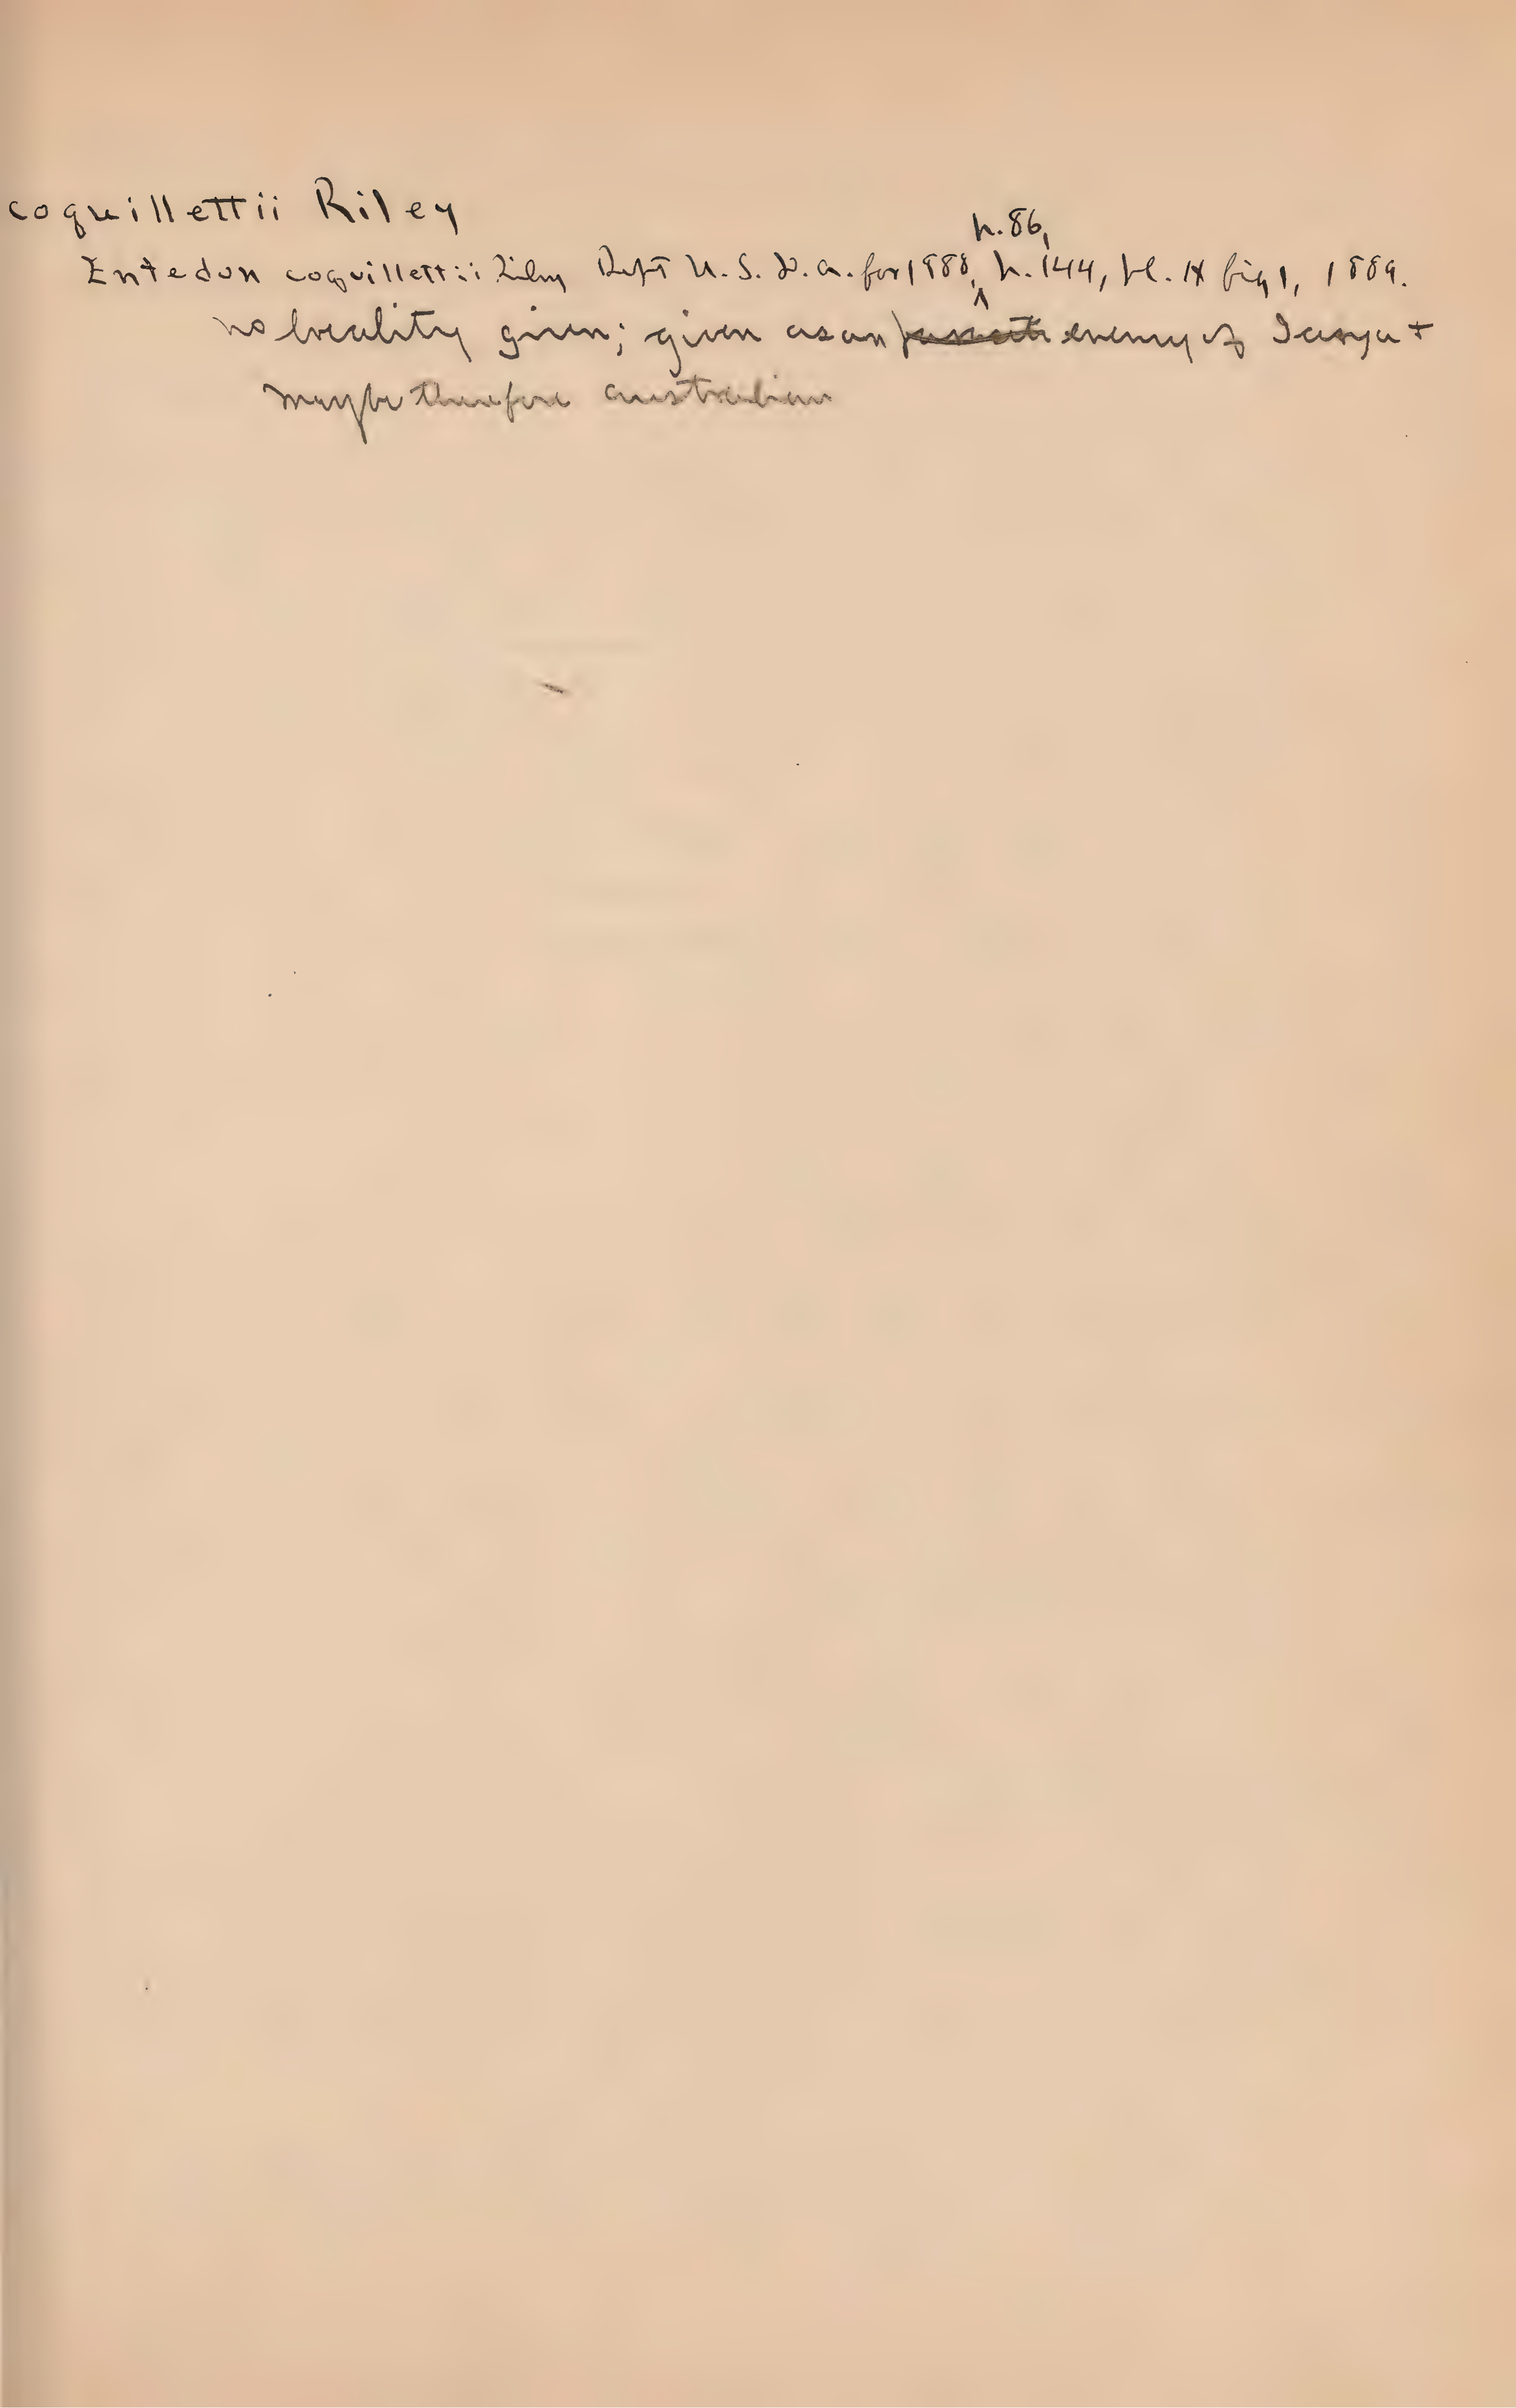 coquillettii Riley
p. 86,
Entedon coquillettii Riley Rept U. S. D. A. for 1888, p. 144, pl. IX fig 1, 1889.
no locality given; given as an parasite enemy of Icerya +
maybe therefore australian